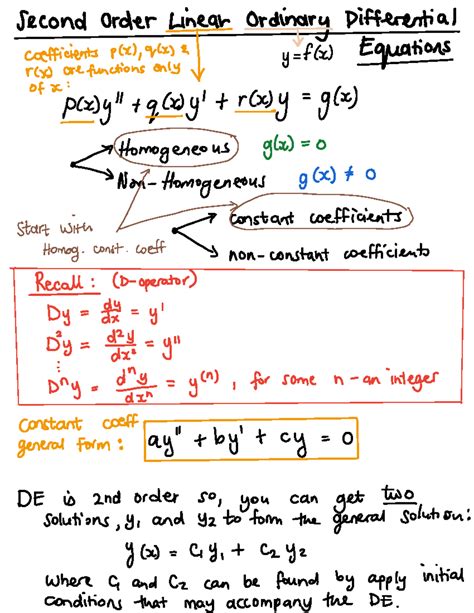 Second Order Linear Ordinary Differential
Equations
coefficients p(x), q(x) &
r(x) are functions only
of x:
y=f(x)
p(x)y'' + q(x)y' + r(x)y = g(x)
Homogeneous g(x) = 0
Non-Homogeneous g(x) ≠ 0
Start with
Homog. const. coeff
constant coefficients
non-constant coefficients
Recall: (D-operator)
Dy = dy/dx = y'
D²y = d²y/dx² = y''
⋮
Dⁿy = dⁿy/dxⁿ = y⁽ⁿ⁾, for some n-an integer
Constant coeff
general form: ay'' + by' + cy = 0
DE is 2nd order so, you can get two
solutions, y₁ and y₂ to form the general solution:
y(x) = C₁y₁ + C₂y₂
where C₁ and C₂ can be found by apply initial
conditions that may accompany the DE.